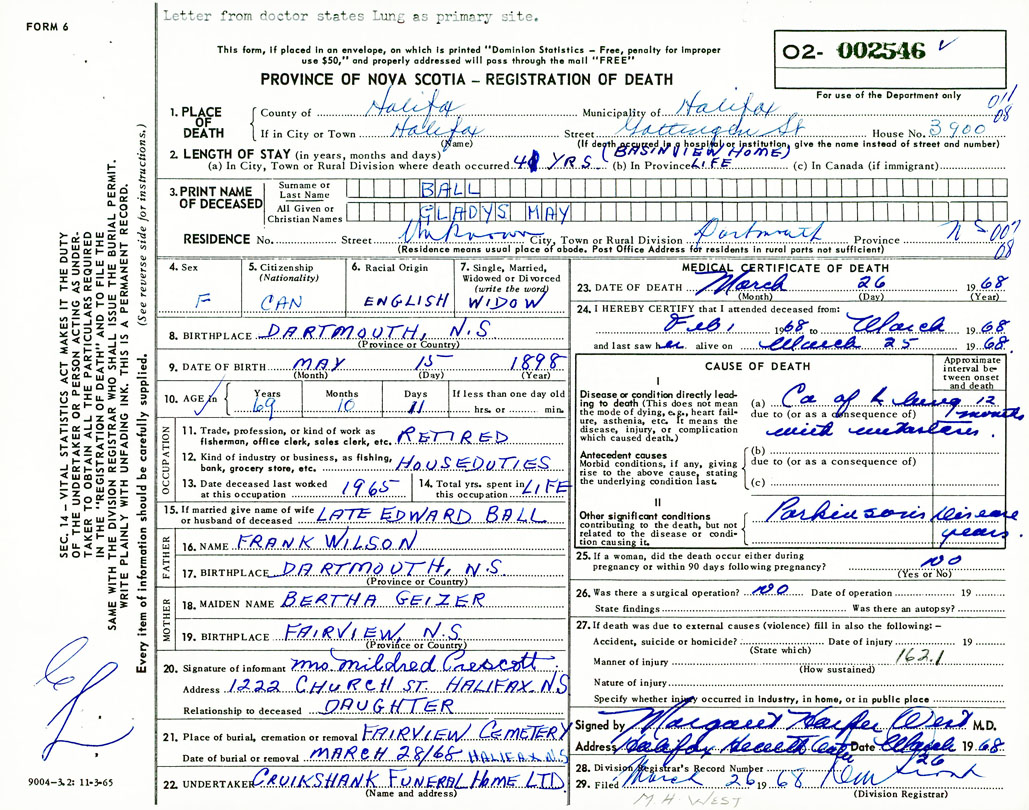 Letter from doctor states Lung as primary site.
FORM 6
This form, if placed in an envelope, on which is printed "Dominion Statistics – Free, penalty for improper
use $50," and properly addressed will pass through the mail "FREE"
O2- 002546
PROVINCE OF NOVA SCOTIA – REGISTRATION OF DEATH
For use of the Department only
011
08
1. PLACE OF DEATH
County of Halifax Municipality of Halifax
If in City or Town Halifax Street Gottingen St House No. 3900
(Name) (If death occurred in a hospital or institution, give the name instead of street and number)
2. LENGTH OF STAY (in years, months and days) (BASINVIEW HOME)
(a) In City, Town or Rural Division where death occurred YRS (b) In Province LIFE (c) In Canada (if immigrant)
3. PRINT NAME OF DECEASED
Surname or Last Name BALL
All Given or Christian Names GLADYS MAY
RESIDENCE No. Street Unknown City, Town or Rural Division Dartmouth Province N S 007
08
(Residence means usual place of abode. Post Office Address for residents in rural parts not sufficient)
4. Sex F
5. Citizenship (Nationality) CAN
6. Racial Origin ENGLISH
7. Single, Married, Widowed or Divorced (write the word) WIDOW
8. BIRTHPLACE DARTMOUTH, N.S
(Province or Country)
9. DATE OF BIRTH MAY 15 1898
(Month) (Day) (Year)
10. AGE in Years 69 Months 10 Days 11 If less than one day old hrs. or min.
OCCUPATION
11. Trade, profession, or kind of work as fisherman, office clerk, sales clerk, etc. RETIRED
12. Kind of industry or business, as fishing, bank, grocery store, etc. HOUSEDUTIES
13. Date deceased last worked at this occupation 1965
14. Total yrs. spent in this occupation LIFE
15. If married give name of wife or husband of deceased LATE EDWARD BALL
FATHER
16. NAME FRANK WILSON
17. BIRTHPLACE DARTMOUTH, N.S
(Province or Country)
MOTHER
18. MAIDEN NAME BERTHA GEIZER
19. BIRTHPLACE FAIRVIEW, N.S
(Province or Country)
20. Signature of informant Mrs Mildred Crescott
Address 1222 CHURCH ST. HALIFAX. NS
Relationship to deceased DAUGHTER
21. Place of burial, cremation or removal FAIRVIEW CEMETERY
Date of burial or removal MARCH 28/68 HALIFAX N.S
22. UNDERTAKER CRUIKSHANK FUNERAL HOME LTD
(Name and address)
MEDICAL CERTIFICATE OF DEATH
23. DATE OF DEATH March 26 1968
(Month) (Day) (Year)
24. I HEREBY CERTIFY that I attended deceased from:
Feb, 1968 to March 1968
and last saw her alive on March 25 1968.
CAUSE OF DEATH
Approximate interval between onset and death
I
Disease or condition directly leading to death (This does not mean the mode of dying, e.g., heart failure, asthenia, etc. It means the disease, injury, or complication which caused death.)
(a) Ca of lung 12
due to (or as a consequence of) months
with metastasis.
Antecedent causes
Morbid conditions, if any, giving rise to the above cause, stating the underlying condition last.
(b)
due to (or as a consequence of)
(c)
II
Other significant conditions contributing to the death, but not related to the disease or condition causing it.
Parkinsons Disease
years.
25. If a woman, did the death occur either during pregnancy or within 90 days following pregnancy? NO
(Yes or No)
26. Was there a surgical operation? NO Date of operation 19
State findings Was there an autopsy?
27. If death was due to external causes (violence) fill in also the following: –
Accident, suicide or homicide? Date of injury 19
(State which)
Manner of injury 162.1
(How sustained)
Nature of injury
Specify whether injury occurred in Industry, in home, or in public place
Signed by Margaret Harper West M.D.
Address Halifax Date March 26 1968.
28. Division Registrar's Record Number
29. Filed March 26 1968
(Division Registrar)
M H WEST
SEC. 14 – VITAL STATISTICS ACT MAKES IT THE DUTY
OF THE UNDERTAKER OR PERSON ACTING AS UNDER-
TAKER TO OBTAIN ALL THE PARTICULARS REQUIRED
IN THE "REGISTRATION OF DEATH" AND TO FILE THE
SAME WITH THE DIVISION REGISTRAR WHO SHALL ISSUE THE BURIAL PERMIT.
WRITE PLAINLY WITH UNFADING INK. THIS IS A PERMANENT RECORD.
Every item of information should be carefully supplied. (See reverse side for instructions.)
9004-3.2: 11-3-65